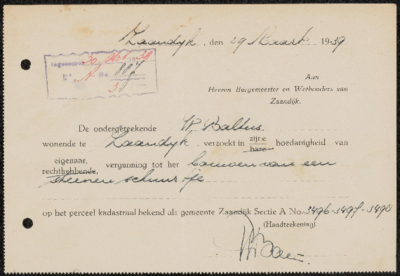 Zaandijk, den 29 Maart 1939
Ingekomen 30 Mrt 1939
No. 117
Aan
Heeren Burgemeester en Wethouders van
Zaandijk.
De ondergeteekende W. Baltus
wonende te Zaandijk, verzoekt in zijne hoedanigheid van
hare
eigenaar,
rechthebbende, vergunning tot het bouwen van een
steenen schuurtje
op het perceel kadastraal bekend als gemeente Zaandijk Sectie A No. 1496-1497-1498
(Handteekening)